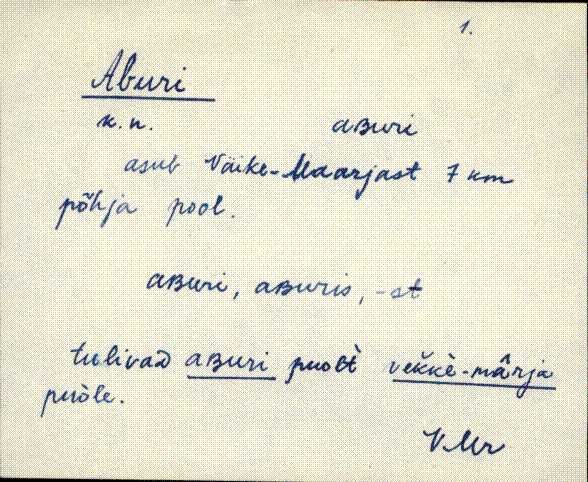 1.
Aburi
k.n. aʙuri
asub Väike-Maarjast 7 km
põhja pool.
aʙuri, aʙuris, -st
tulivaᴅ aʙuri puolt̀ veĭk̀k̀è-mârja
puole.
VMr